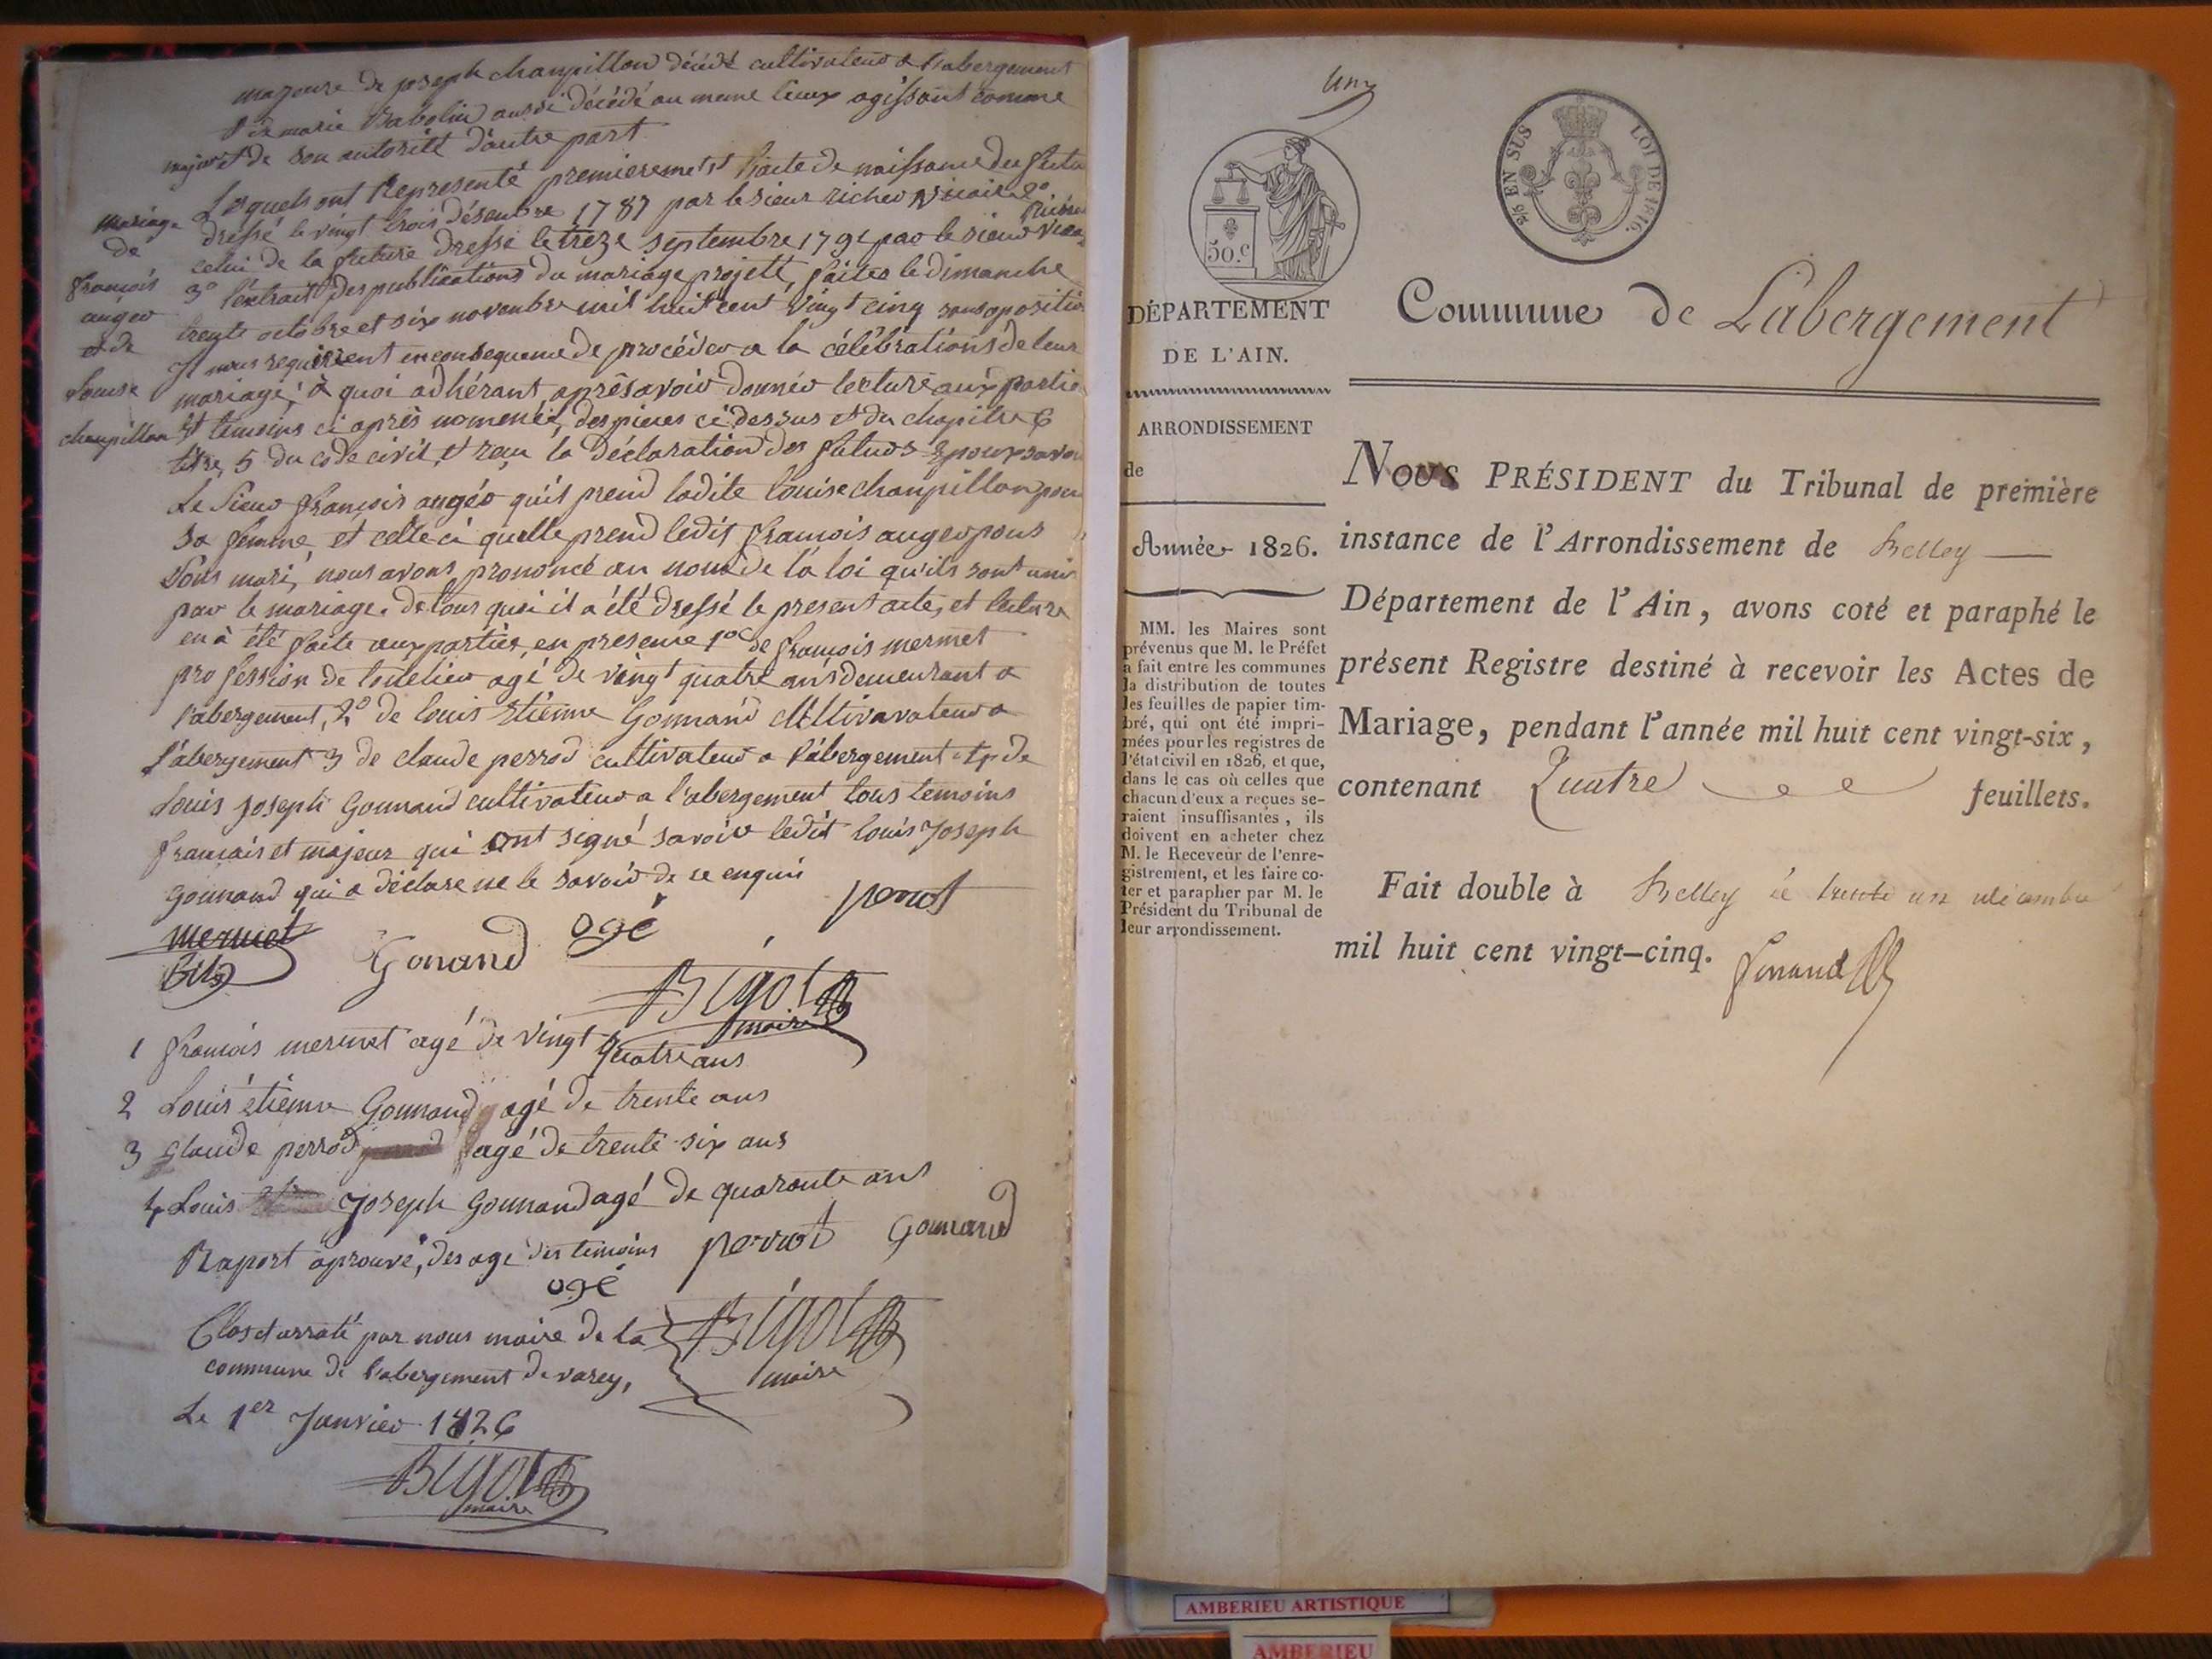 majeure de joseph chanpillon décédé cultivateur a l'abergement
et de marie Babolin aussi décédé au meme lieux agissant comme
majeur et de son autorité d'autre part
Lesquels ont Representé premierement l'acte de naissance du futu
dressé le vingt trois désenbre 1787 par le sieur richer Vicaire 2°
celui de la future dressé le treze septembre 1791 par le sieur
3° l'extrait des publications du mariage projetté, faites le dimanche
trente octobre et six novenbre mil huit cent vingt cinq sans opositio
Il nous requièrent en consequence de procéder a la célébrations de leur
mariage; à quoi adhérant, après avoir donnéo lecture aux partie
et temoins ci après nomenés, des pieces ci dessus et du chapitre 6
titre, 5 du code civil, et reçu la déclaration des futurs epoux savoi
Le Sieur françois angéo qu'il prend ladite louise chanpillon pour
sa femme, et celle ci quelle prend ledit françois augeo pour
Sons mari, nous avons prononcé au nom de la loi qu'ils sont unis
par le mariage. de tous quoi il a été dressé le present acte, et lecture
en à été faite aux parties, en presence 1° de françois mermet
profession de toilelier agé de vingt quatre ans demeurant a
l'abergement, 2° de louis Etienne Gonnand cultivavateur a
l'abergement 3 de claude perrod cultivateur a l'abergement et 4 de
Louis joseph Gonnand cultivateur a l'abergement tous temoins
français et majeur qui ont signé savoir ledit louis Joseph
Gonnand qui a déclare ne le savoir de ce enquis
mariage
de
françois
augeo
et de
Louise
chanpillon
mermet
fils
Gonand
ogé
perrot
Bigot
maire
1 françois mermet agé de vingt quatre ans
2 Louis étienne Gonnand agé de trente ans
3 Claude perrod agé de trente six ans
4 Louis Joseph Gonnand agé de quarante ans
Raport aprouvé, des age des temoins perrot Gonnand
ogé
Clos et arraté par nous maire de la
commune de l'abergement de varey,
Le 1er Janvier 1826
Bigot
maire
Bigot
maire
Un
50.c
2/5 EN SUS
LOI DE 1816.
DÉPARTEMENT
DE L'AIN.
ARRONDISSEMENT
de
Année 1826.
MM. les Maires sont
prévenus que M. le Préfet
a fait entre les communes
la distribution de toutes
les feuilles de papier tim-
bré, qui ont été impri-
mées pour les registres de
l'état civil en 1826, et que,
dans le cas où celles que
chacun d'eux a reçues se-
raient insuffisantes, ils
doivent en acheter chez
M. le Receveur de l'enre-
gistrement, et les faire co-
ter et parapher par M. le
Président du Tribunal de
leur arrondissement.
Commune de Labergement
NOUS PRÉSIDENT du Tribunal de première
instance de l'Arrondissement de Belley
Département de l'Ain, avons coté et paraphé le
présent Registre destiné à recevoir les Actes de
Mariage, pendant l'année mil huit cent vingt-six,
contenant Quatre feuillets.
Fait double à Belley le trente un décembre
mil huit cent vingt-cinq.
AMBERIEU ARTISTIQUE
AMBERIEU